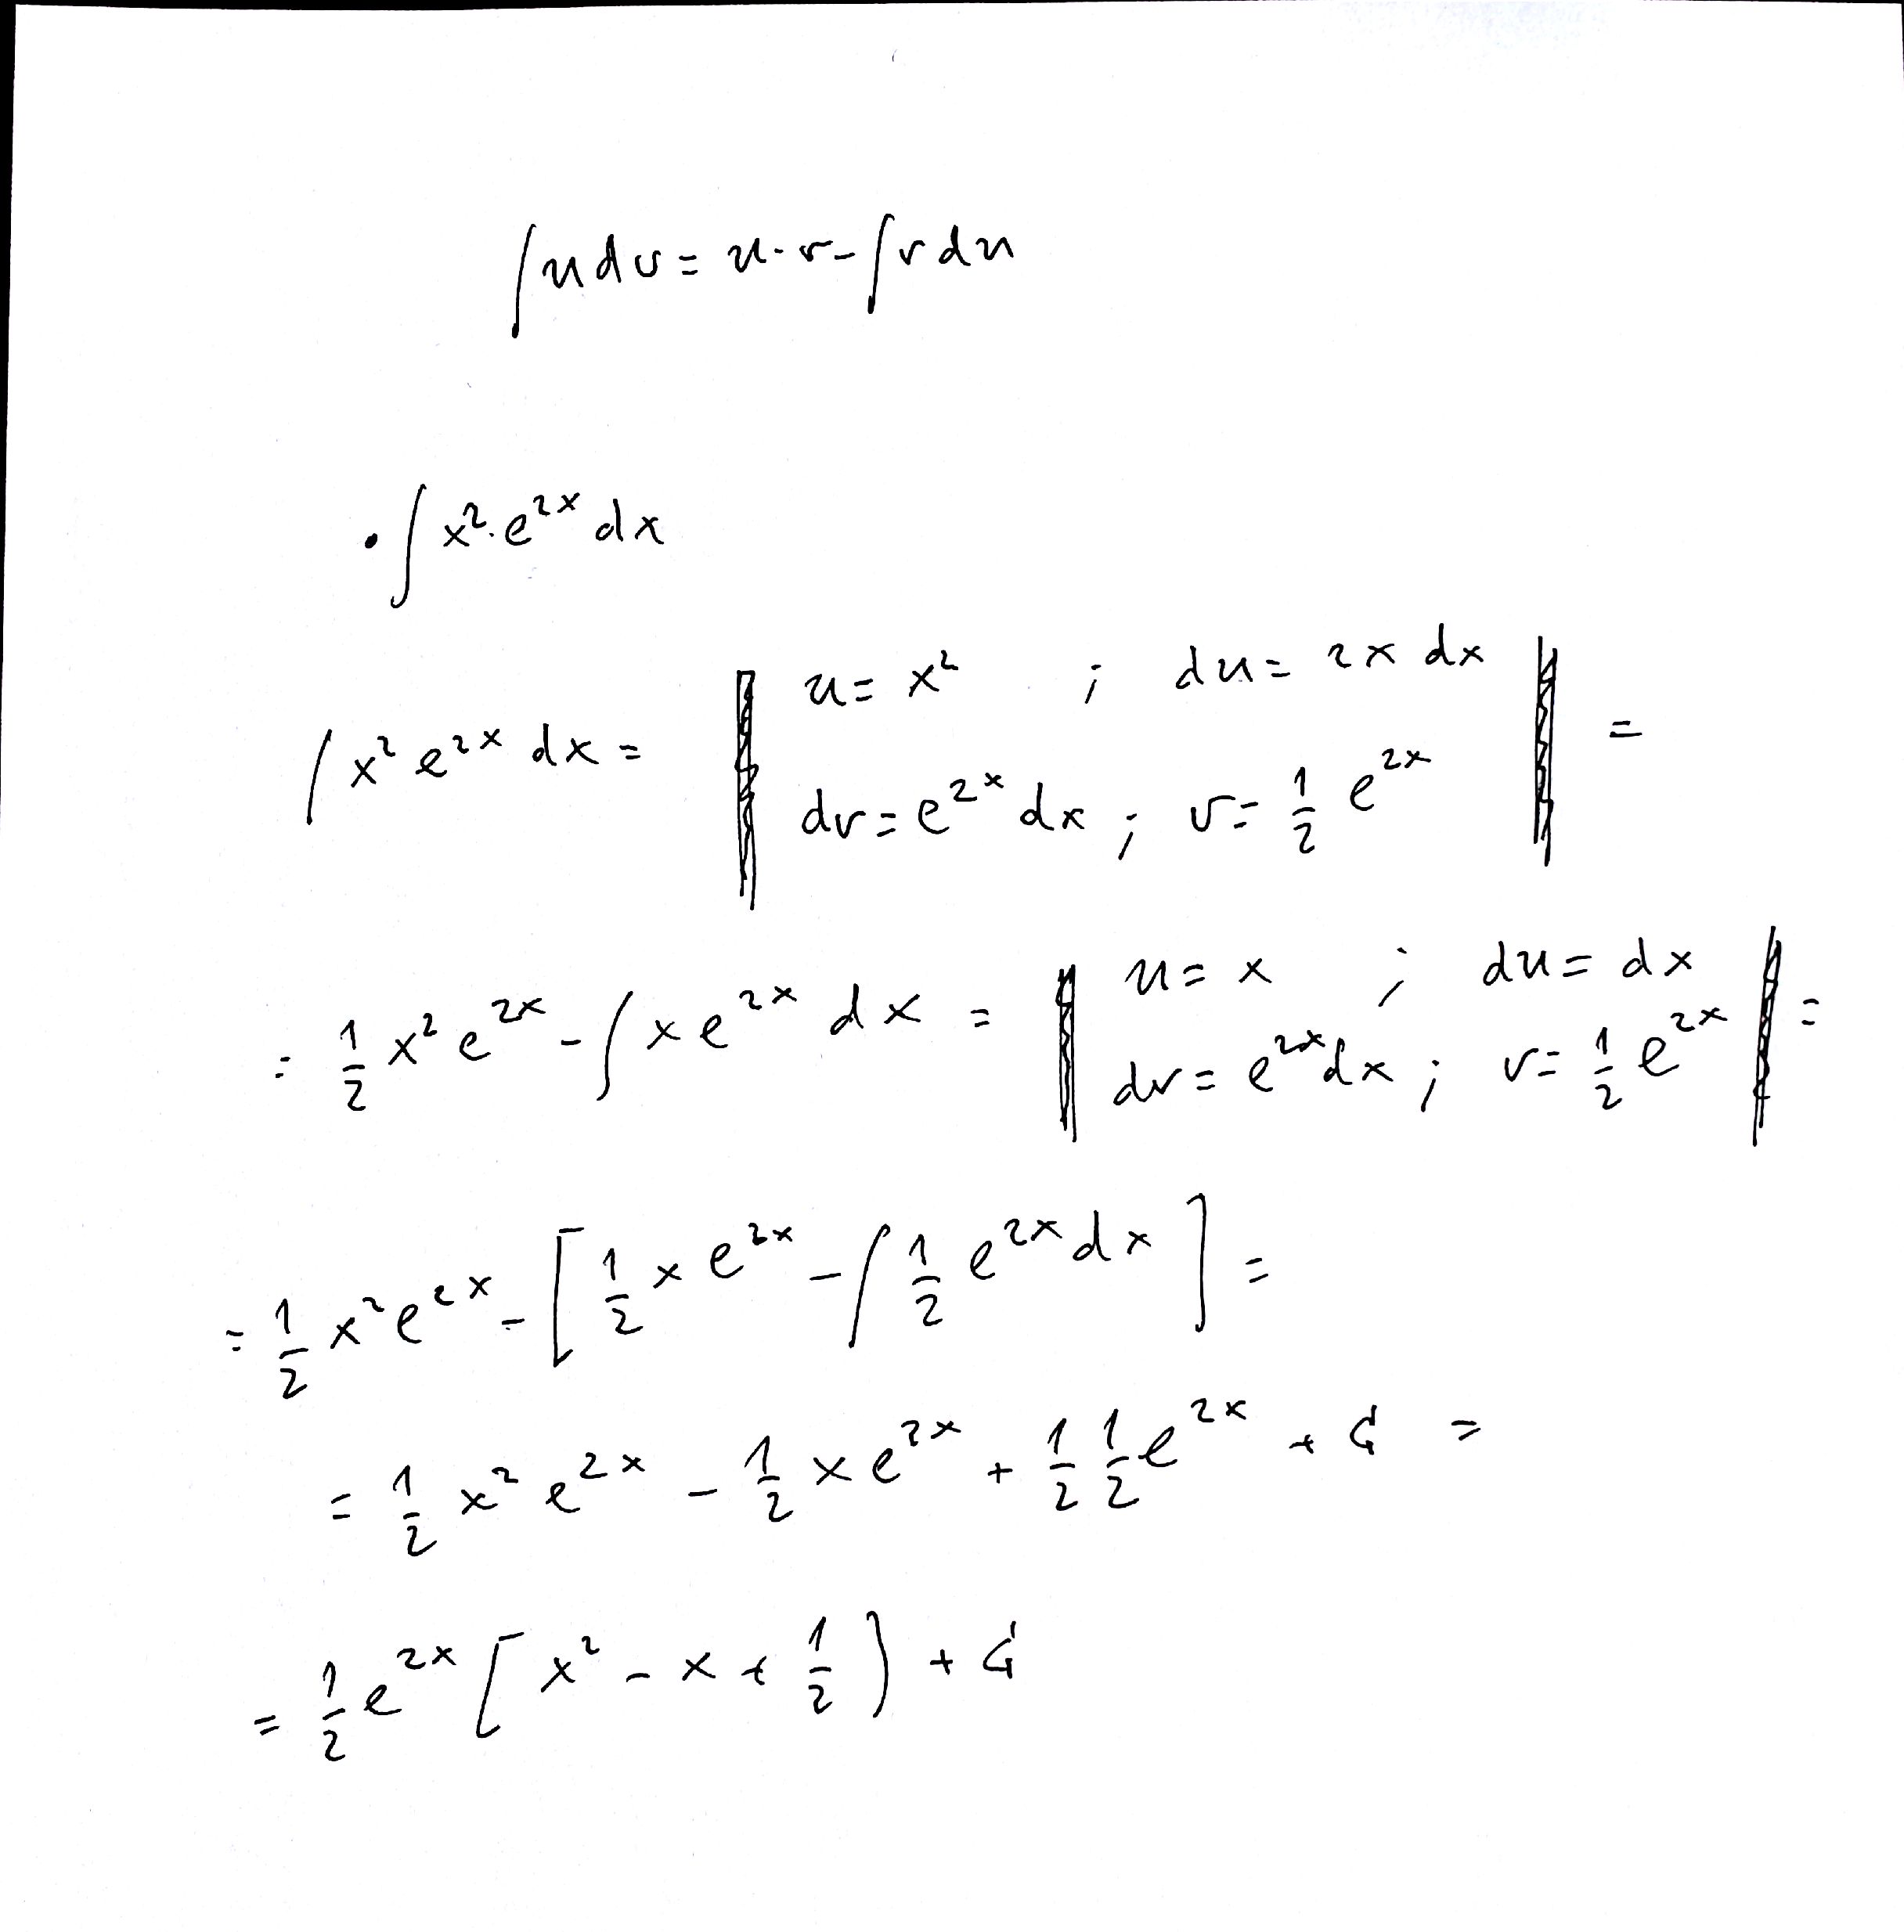 ∫ u dv = u · v - ∫ v du
• ∫ x² · e²ˣ dx
∫ x² e²ˣ dx = ‖ u = x² ; du = 2x dx
dv = e²ˣ dx ; v = 1/2 e²ˣ ‖ =
= 1/2 x² e²ˣ - ∫ x e²ˣ dx = ‖ u = x ; du = dx
dv = e²ˣ dx ; v = 1/2 e²ˣ ‖ =
= 1/2 x² e²ˣ - [ 1/2 x e²ˣ - ∫ 1/2 e²ˣ dx ] =
= 1/2 x² e²ˣ - 1/2 x e²ˣ + 1/2 1/2 e²ˣ + C =
= 1/2 e²ˣ [ x² - x + 1/2 ) + C